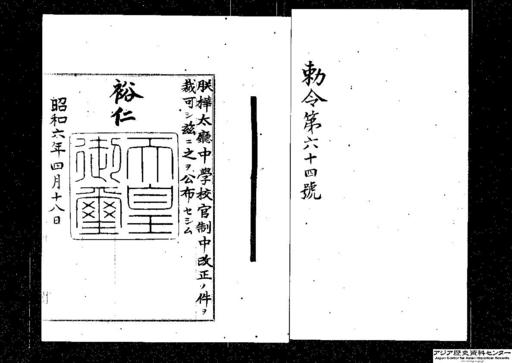 勅令第六十四號
朕樺太廳中學校官制中改正ノ件ヲ
裁可シ茲ニ之ヲ公布セシム
裕仁
天皇
御璽
昭和六年四月十八日
アジア歴史資料センター
Japan Center for Asian Historical Records